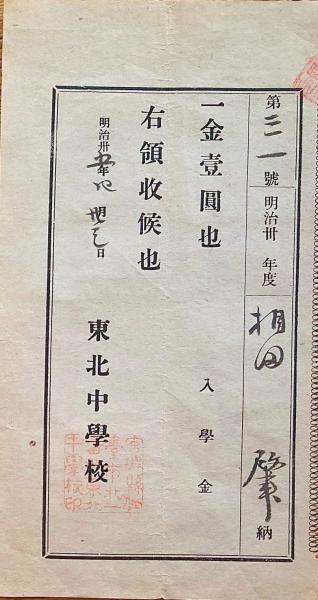 第三一號 明治卅 年度 相田 肇 納
一金壹圓也 入學金
右領收候也
明治卅五年四月 日
東北中學校